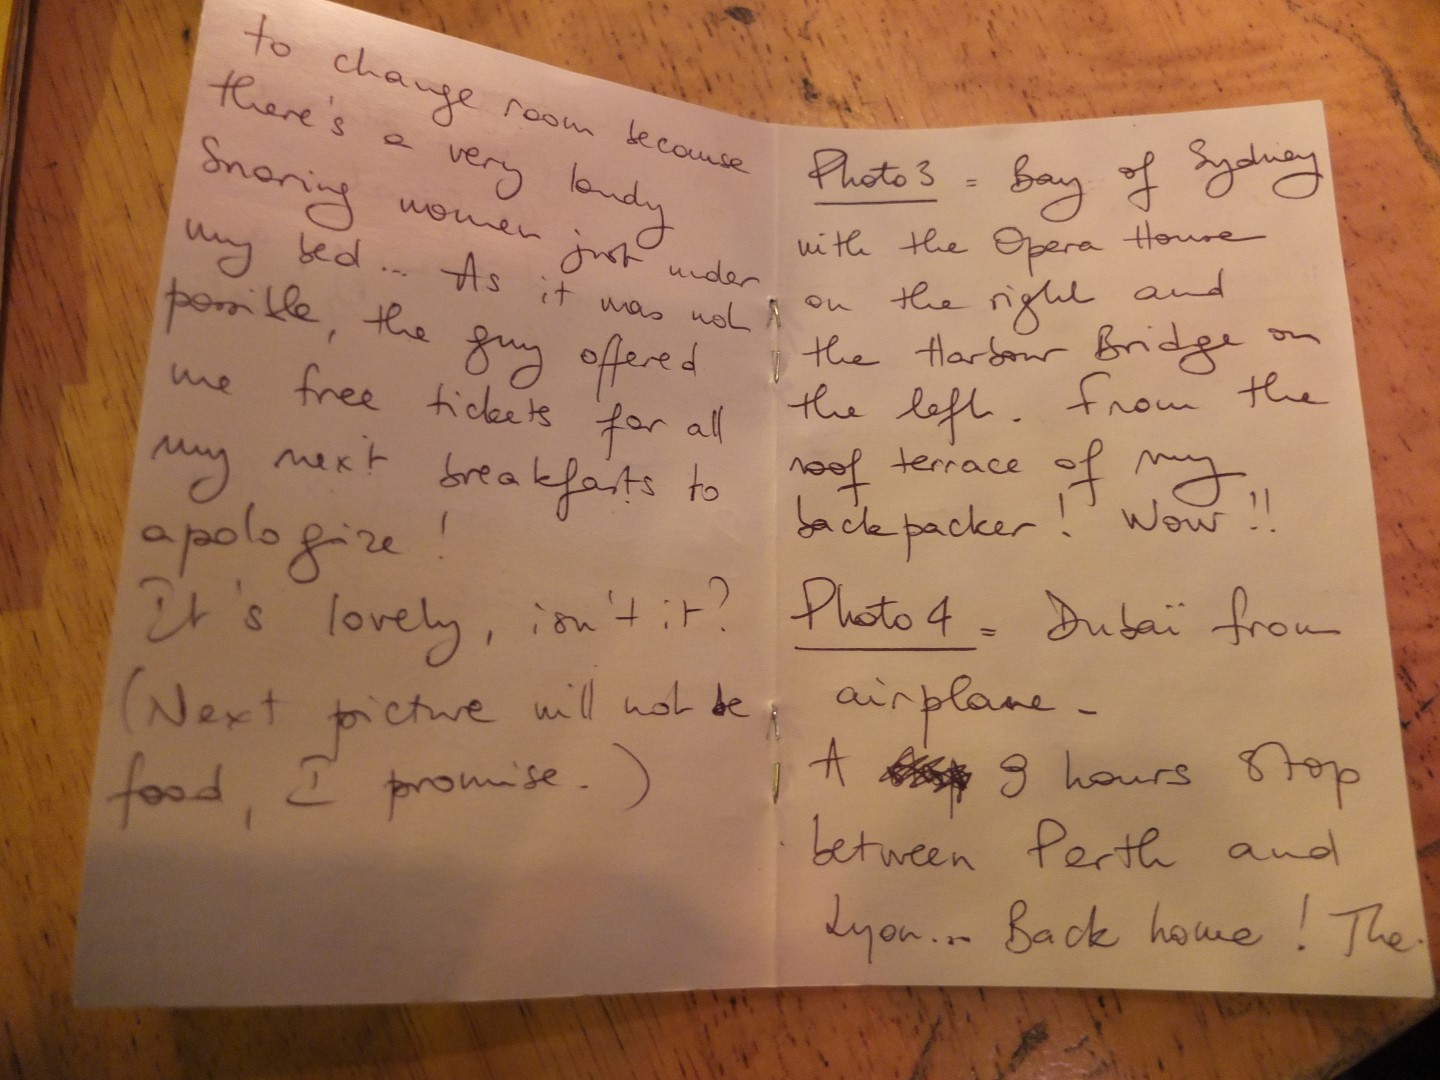 to change room because
there's a very loudy
Snoring women just under
my bed... As it was not
possible, the guy offered
me free tickets for all
my next breakfasts to
apologize !
It's lovely, isn't it?
(Next picture will not be
food, I promise.)
Photo 3 = Bay of Sydney
with the Opera House
on the right and
the Harbour Bridge on
the left. From the
roof terrace of my
backpacker ! Wow !!
Photo 4 = Dubaï from
airplane -
A 3 hours Stop
between Perth and
Lyon... Back home ! The